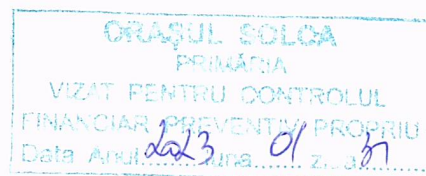 ORAȘUL SOLCA
PRIMĂRIA
VIZAT PENTRU CONTROLUL
FINANCIAR PREVENTIV PROPRIU
Data Anul 2023 luna 01 z.. 31